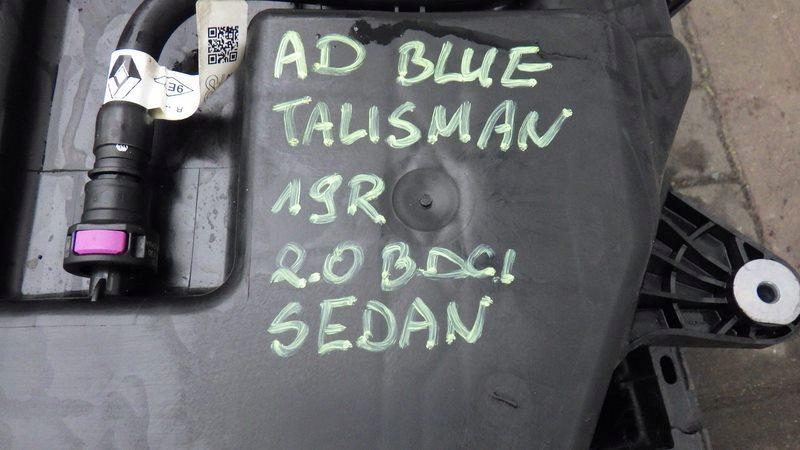 AD BLUE
TALISMAN
19R
2.0 BDCI
SEDAN